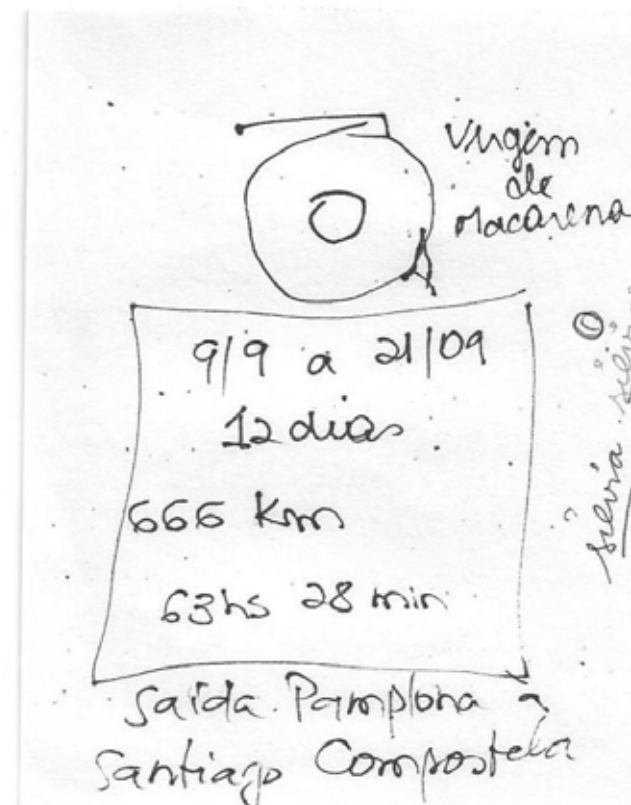 Virgem
de
Macarena
9/9 a 21/09
12 dias
666 Km
63hs 28 min
Saída Pamplona a
Santiago Compostela
silvia